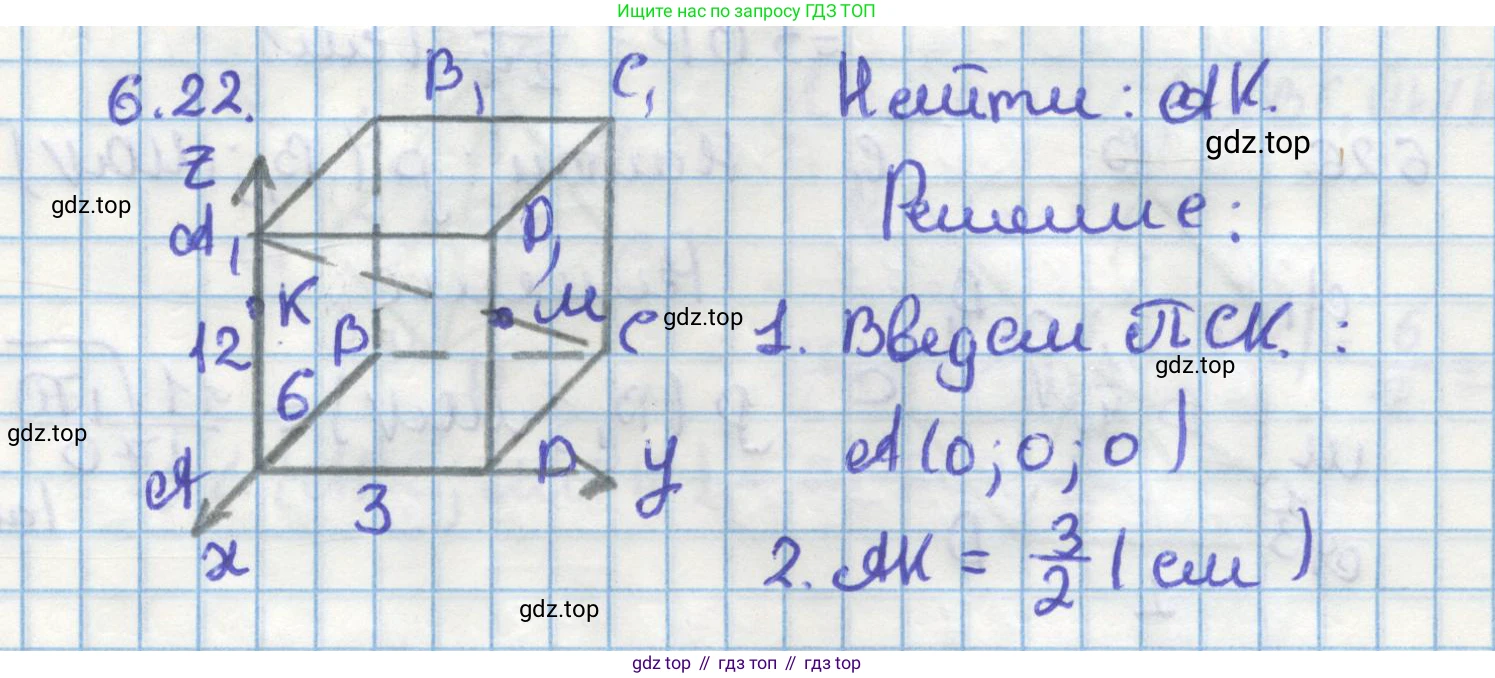 Ищите нас по запросу ГДЗ ТОП
6.22.
B₁ C₁
Найти: AK.
gdz.top
z
gdz.top
Решение:
A₁ D₁
K M
B C
gdz.top
12
1. Введем ПСК. :
gdz.top
6
gdz.top
A D y
A(0;0;0)
3
x
2. AK = 3/2 (см)
gdz.top
gdz top // гдз топ // gdz top